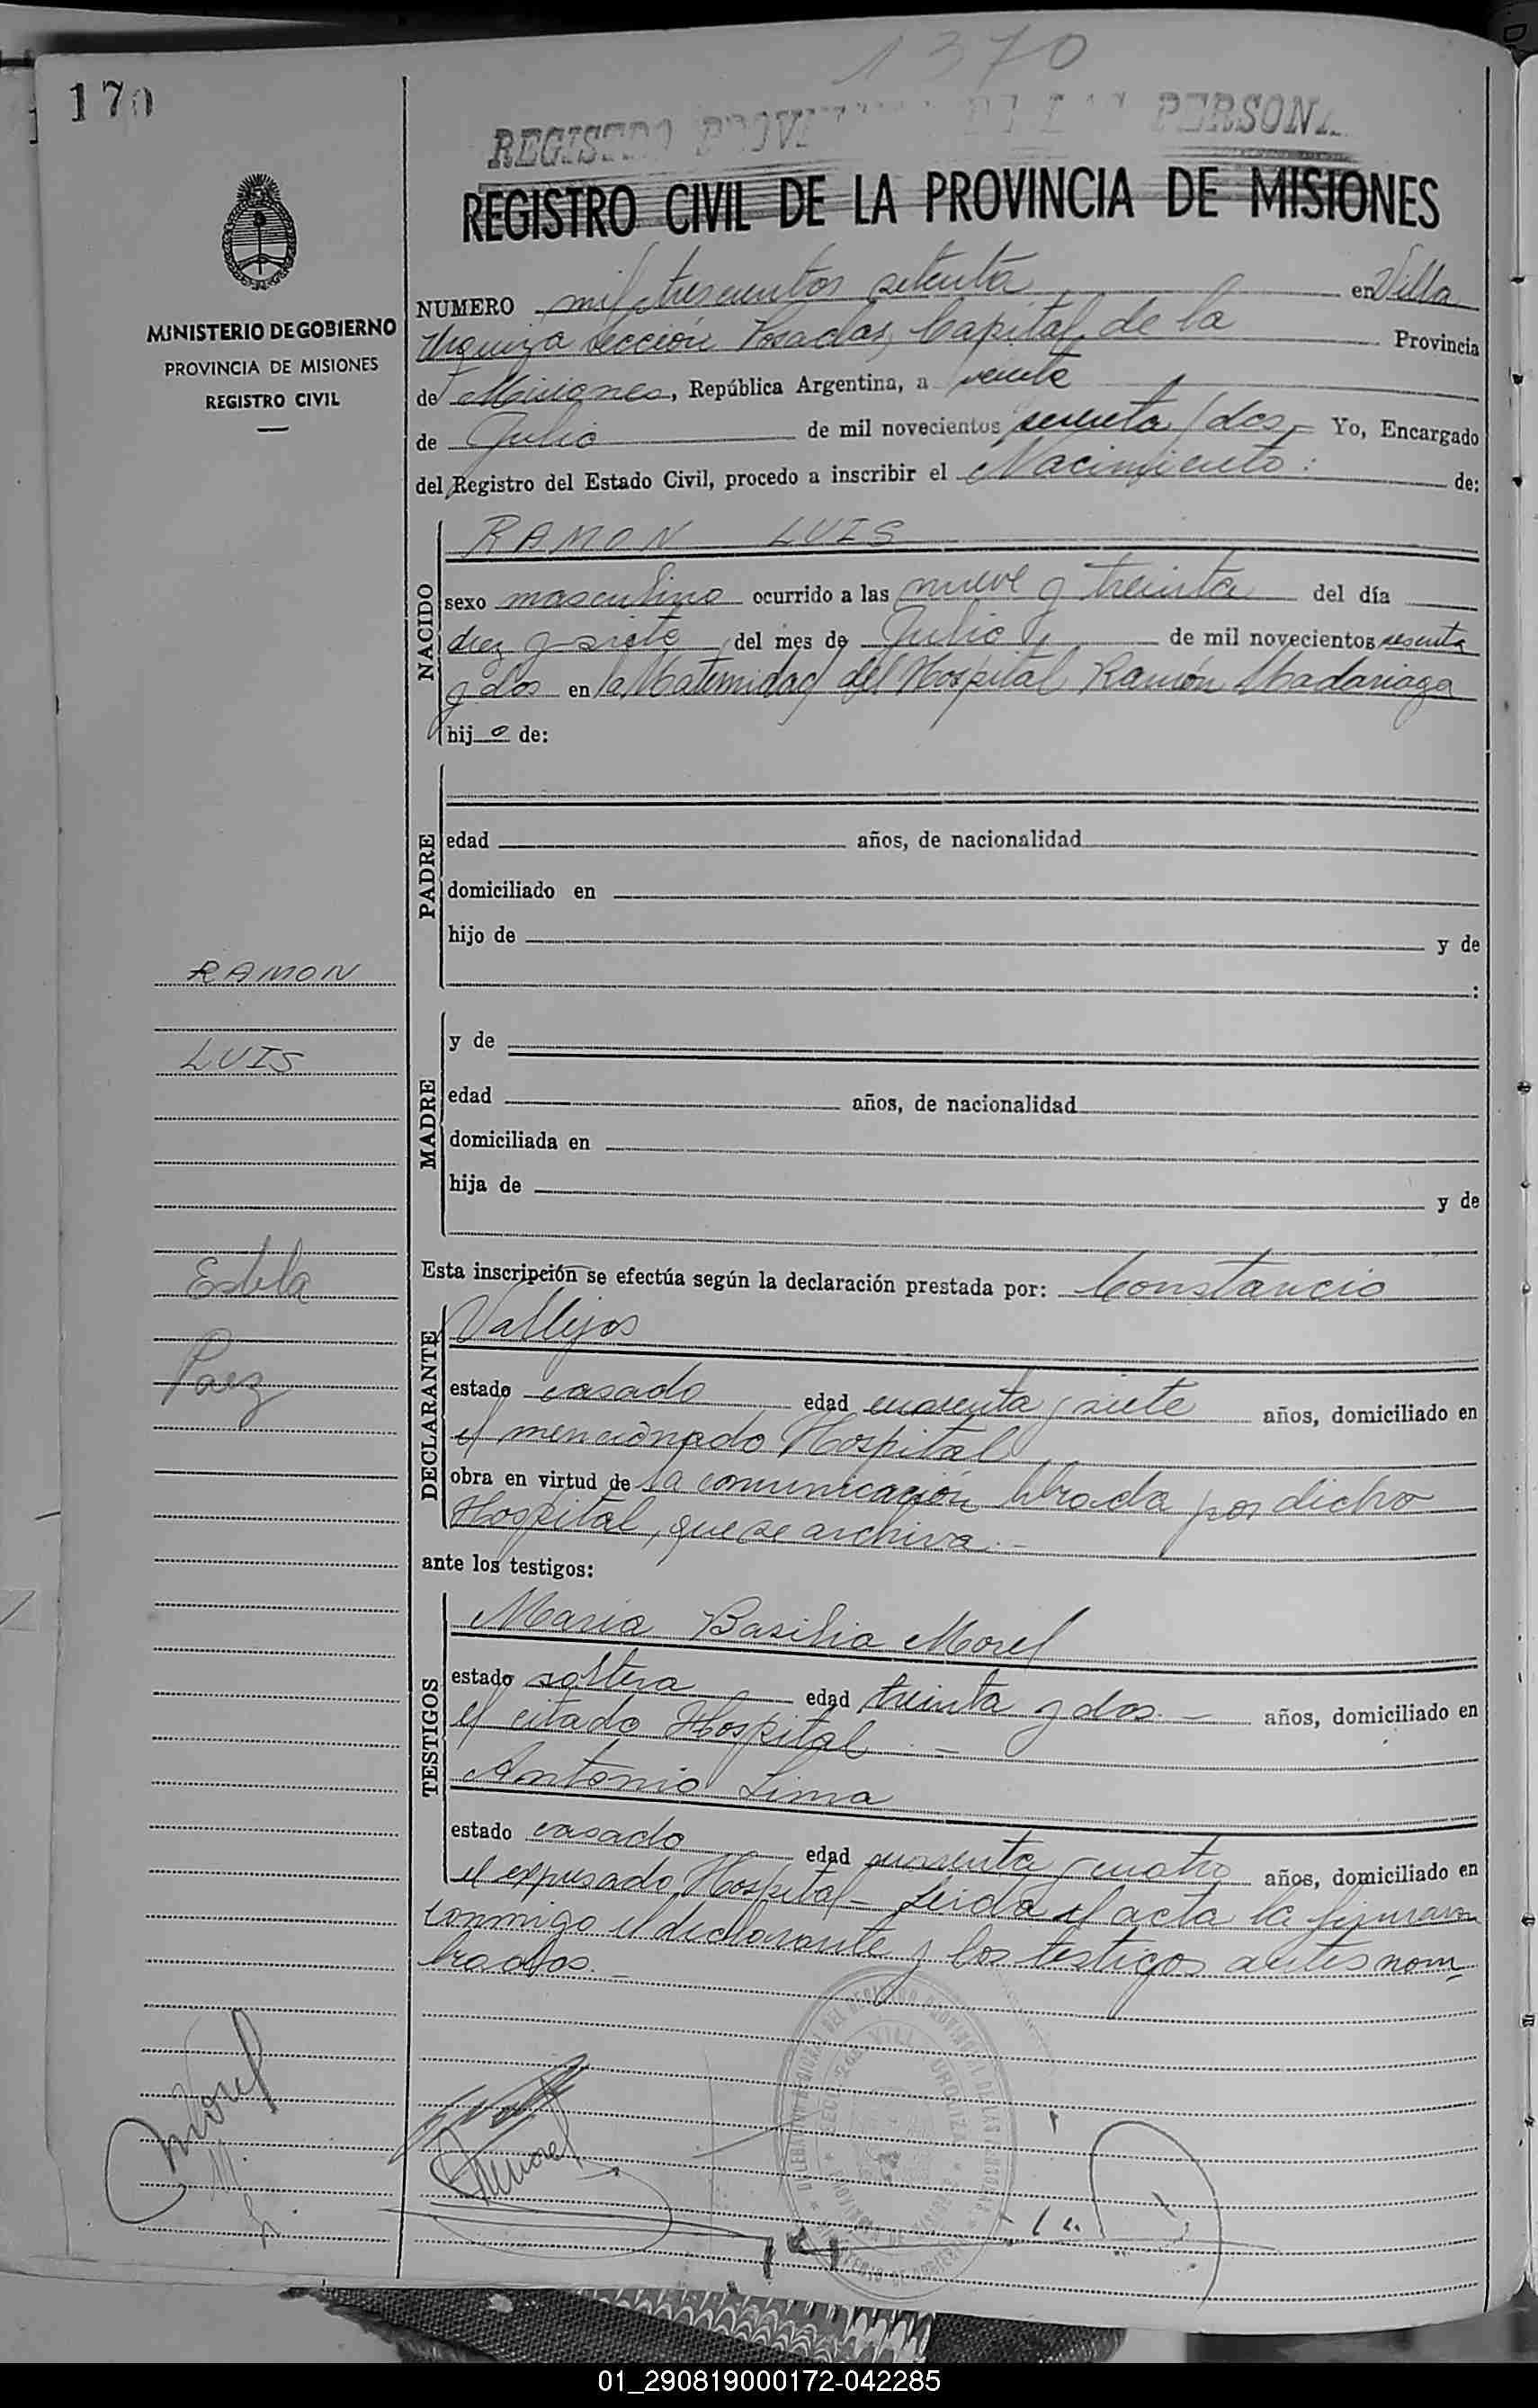 1370
170
REGISTRO PERSONA
REGISTRO CIVIL DE LA PROVINCIA DE MISIONES
MINISTERIO DE GOBIERNO
PROVINCIA DE MISIONES
REGISTRO CIVIL
NUMERO mil trescientos setenta en Villa
Urquiza sección Posadas, Capital de la Provincia
de Misiones, República Argentina, a veinte
de Julio de mil novecientos sesenta y dos.- Yo, Encargado
del Registro del Estado Civil, procedo a inscribir el Nacimiento: de:
NACIDO
RAMON LUIS
sexo masculino ocurrido a las nueve y treinta del día
diez y siete del mes de Julio de mil novecientos sesenta
y dos en la Maternidad del Hospital Ramón Madariaga
hijo de:
PADRE
edad años, de nacionalidad
domiciliado en
hijo de y de
:
RAMON
LUIS
MADRE
y de
edad años, de nacionalidad
domiciliada en
hija de y de
Estela
Paez
Esta inscripción se efectúa según la declaración prestada por: Constancio
DECLARANTE
Vallejos
estado casado edad cuarenta y siete años, domiciliado en
el mencionado Hospital
obra en virtud de la comunicación librada por dicho
Hospital, que se archiva.-
ante los testigos:
TESTIGOS
Maria Basilia Morel
estado soltera edad treinta y dos.- años, domiciliado en
el citado Hospital.-
Antonio Lima
estado casado edad cuarenta y cuatro años, domiciliado en
el expresado Hospital- Leida el acta la firmaron
conmigo el declarante y los testigos antes nom
brados.-
Morel
01_290819000172-042285